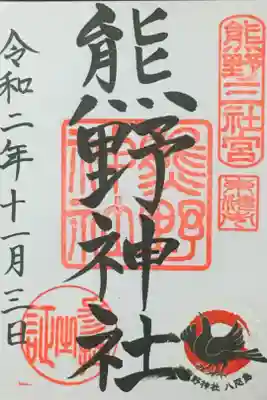 熊野三社宮
熊野神社
令和二年十一月三日
熊野神社 八咫烏